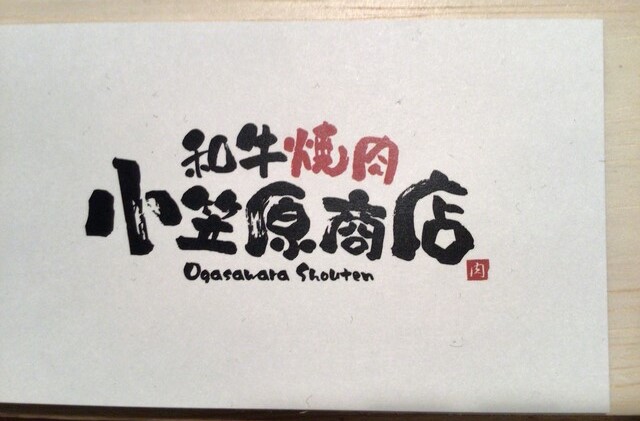 和牛焼肉
小笠原商店
Ogasawara Shouten
肉